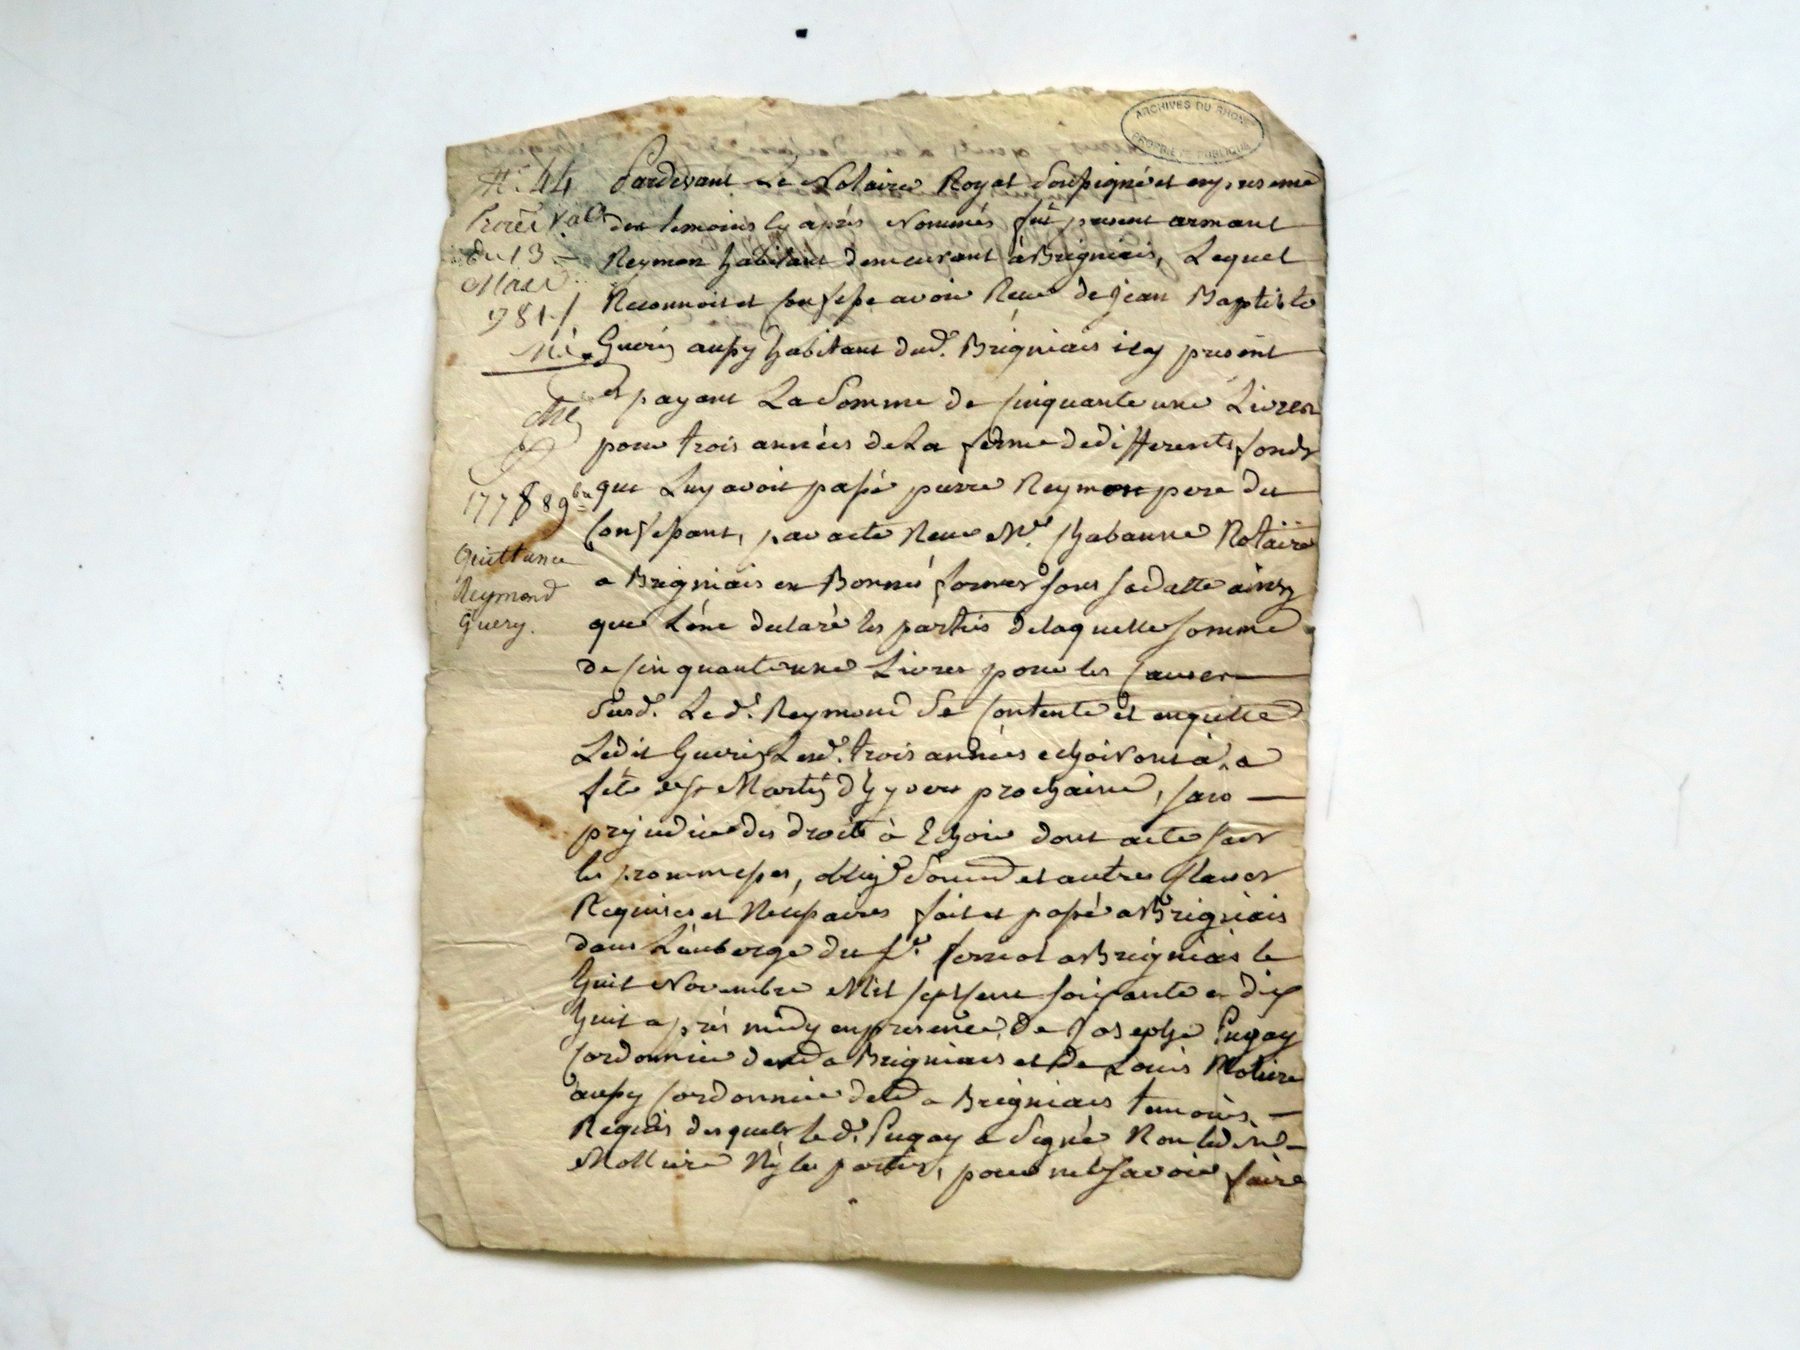 ARCHIVES DU RHONE
PROPRIETE PUBLIQUE
N.º 44
du 13
Mars
981
1778 8 9bre
Quittance
Reymond
Guery.
Pardevant Le Notaire Royal Soussigné et en presence
des temoins cy après Nommés fut present armant
Reymon habitant demeurant à Brigniais, Lequel
Reconnoit et Confesse avoir Reçu de jean Baptiste
Guerin aussy habitant dud. Brigniais icy present
et payant La Somme de Cinquante une Livres
pour trois années de La ferme de differents fonds
que Luy avoit passé pierre Reymon pere du
Confessant, par acte Recu Me. Chabanne Notaire
a Brigniais en Bonne forme sous sa datte ainsy
que L'ont declaré les parties de laquelle somme
de Cinquante une Livres pour les Causes
Susd. Led. Reymond Se Contente et en quitte
Ledit Guerin Lesd. trois années echoiront à La
fête de St Martin d'hyver prochaine, sans
prejudice des droits à Echoir dont acte sous
les prommesses, oblig. Soumd et autres Clauses
Requises et Necessaires fait et passé a Brigniais
dans L'auberge du Sr. a Brigniais le
huit Novembre Mil sept cent soixante et dix
huit après midy en presence de Joseph Pugay
Cordonnier demt a Brigniais et de Louis Moliere
aussy Cordonnier demt a Brigniais temoins
Requis desquels led. Pugay a Signé Non led.
Molliere Ny les parties, pour ne Sçavoir faire